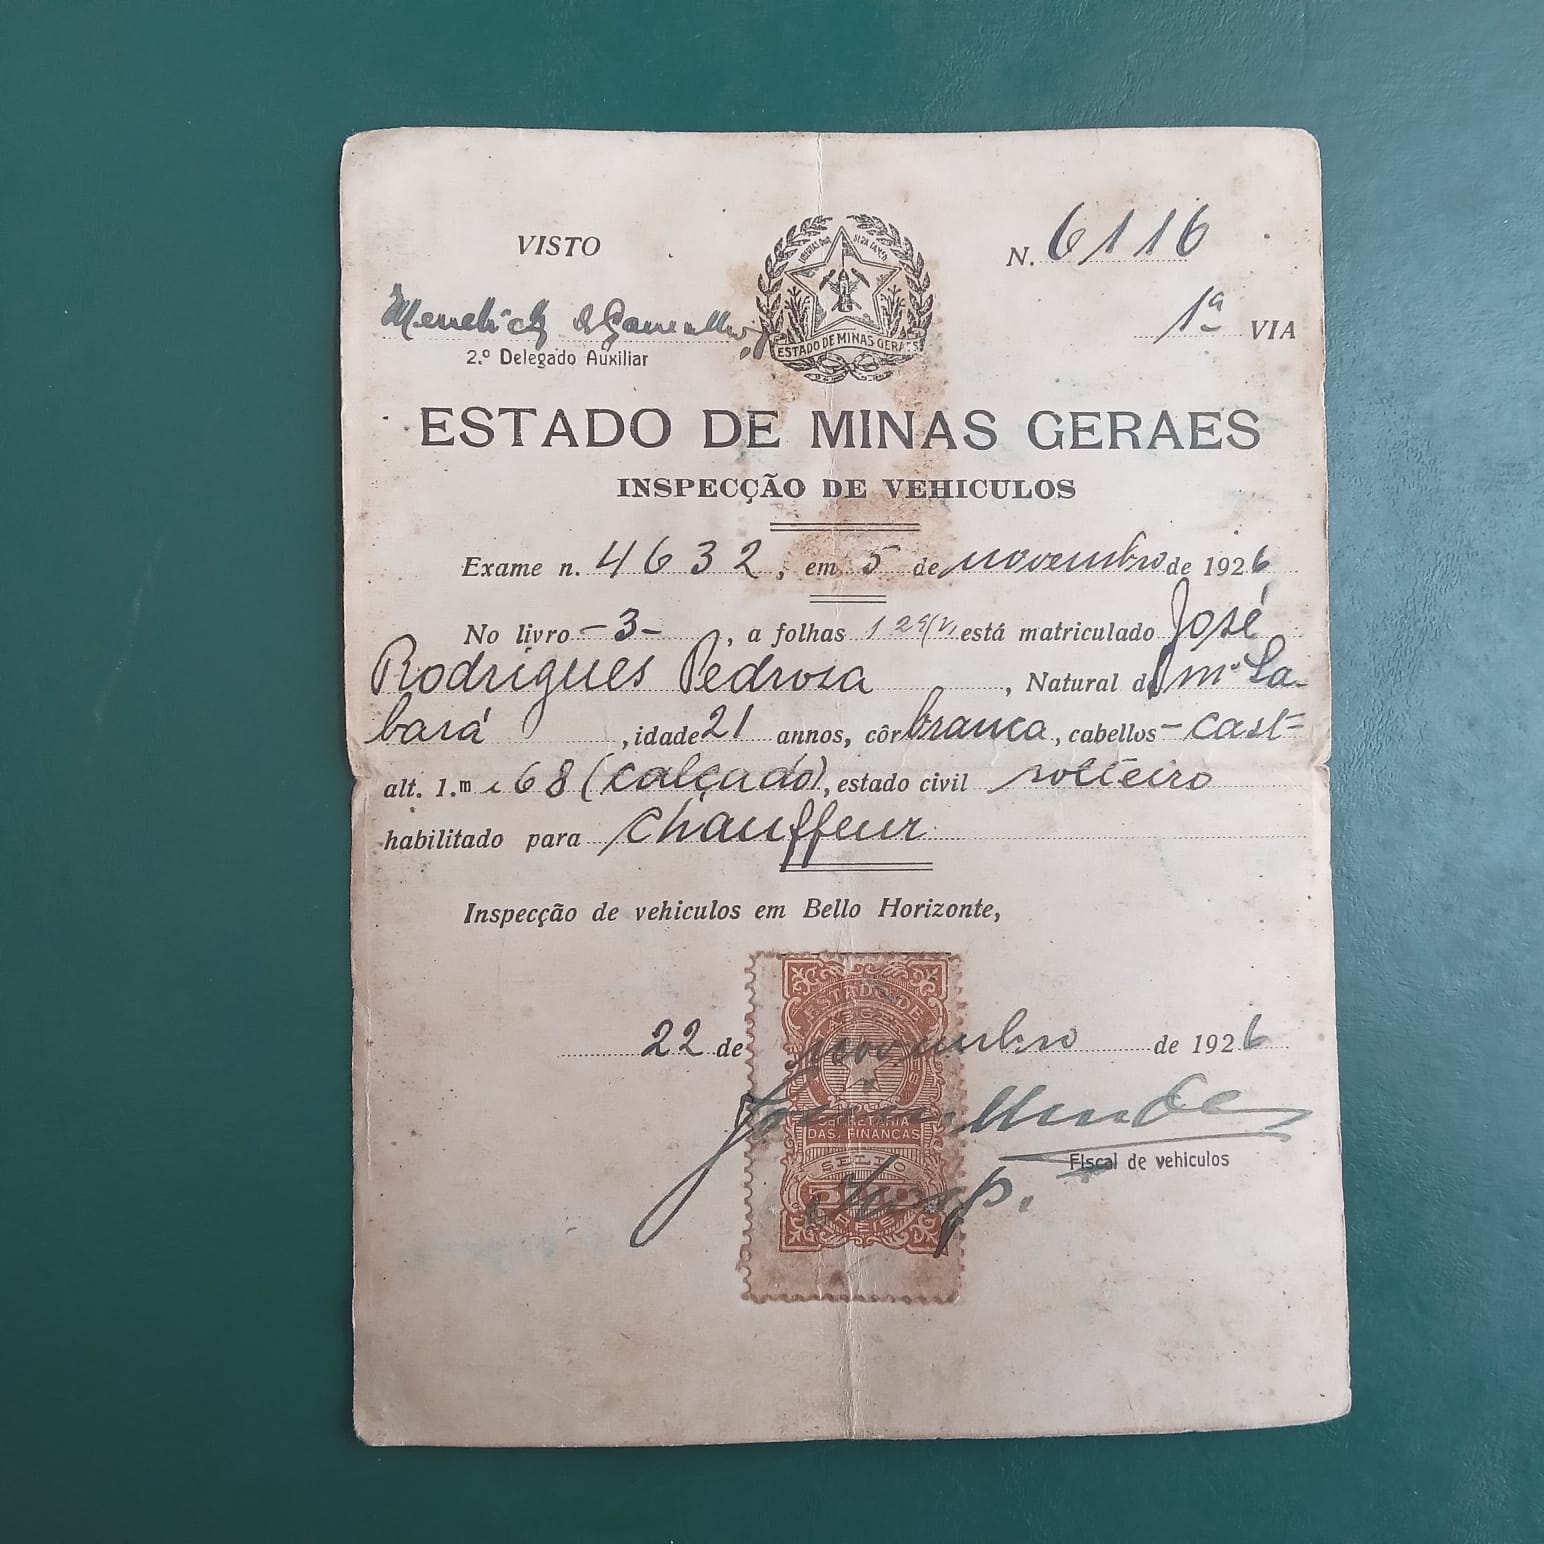 VISTO
N. 6116
1ª VIA
2.º Delegado Auxiliar
ESTADO DE MINAS GERAES
ESTADO DE MINAS GERAES
INSPECÇÃO DE VEHICULOS
Exame n. 4632, em 5 de novembro de 1926
No livro -3-, a folhas está matriculado José
Rodrigues Pedrosa, Natural de Sa-
bará, idade 21 annos, côr branca, cabellos - cast=
alt. 1.m e 68 (calçado), estado civil solteiro
habilitado para chauffeur
Inspecção de vehiculos em Bello Horizonte,
ESTADO DE
22 de novembro de 1926
SECRETARIA
DAS FINANÇAS
Fiscal de vehiculos
SELLO
REIS